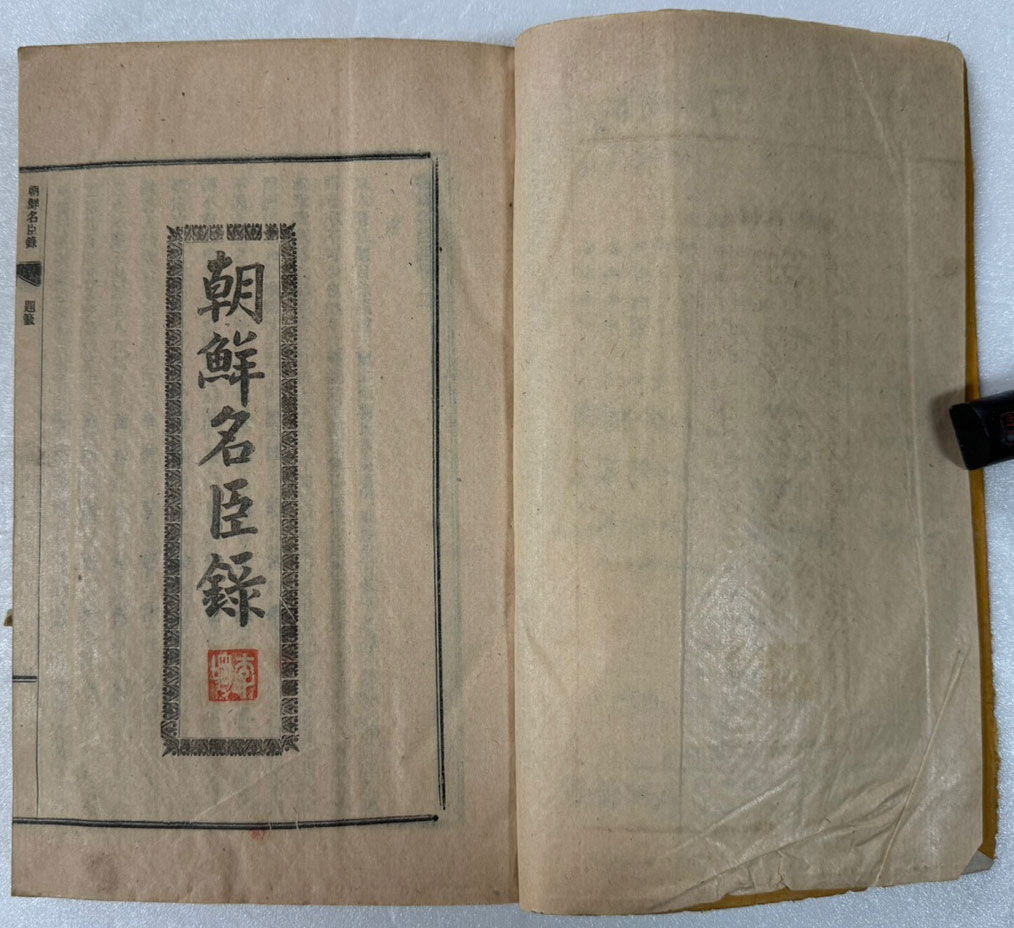 朝鮮名臣錄
朝鮮名臣錄
題籤